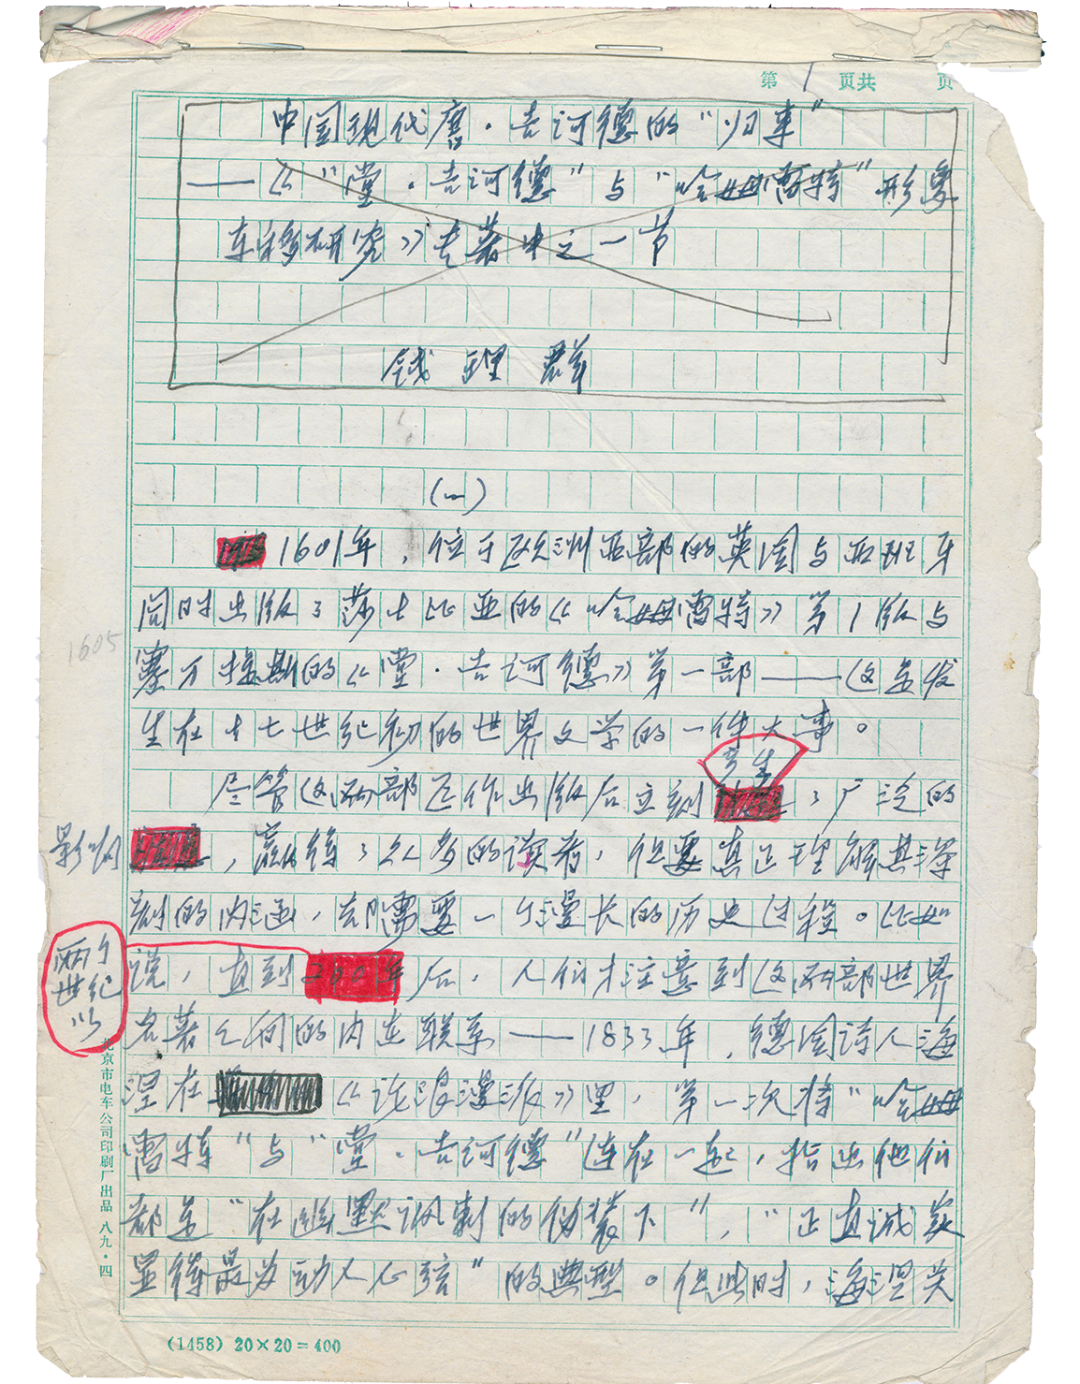 第 1 页共 页
中国现代唐·吉诃德的“归来”
——《“堂·吉诃德”与“哈姆雷特”形象
东移研究》专著中之一节
钱理群
(一)
1601年，位于欧洲西部的英国与西班牙
同时出版了莎士比亚的《哈姆雷特》第1版与
1605
塞万提斯的《堂·吉诃德》第一部——这是发
生在十七世纪初的世界文学的一件大事。
产生
尽管这两部巨作出版后立刻了广泛的
影响
，赢得了众多的读者，但要真正理解其深
刻的内涵，却需要一个漫长的历史过程。比如
两个
世纪
以
说，直到200年后，人们才注意到这两部世界
名著之间的内在联系——1833年，德国诗人海
涅在《论浪漫派》里，第一次将“哈姆
雷特”与“堂·吉诃德”连在一起，指出他们
都是“在幽默讽刺的伪装下”，“正直诚实
显得最为动人心弦”的典型。但此时，海涅关
北京市电车公司印刷厂出品 八九·四
(1458) 20×20=400